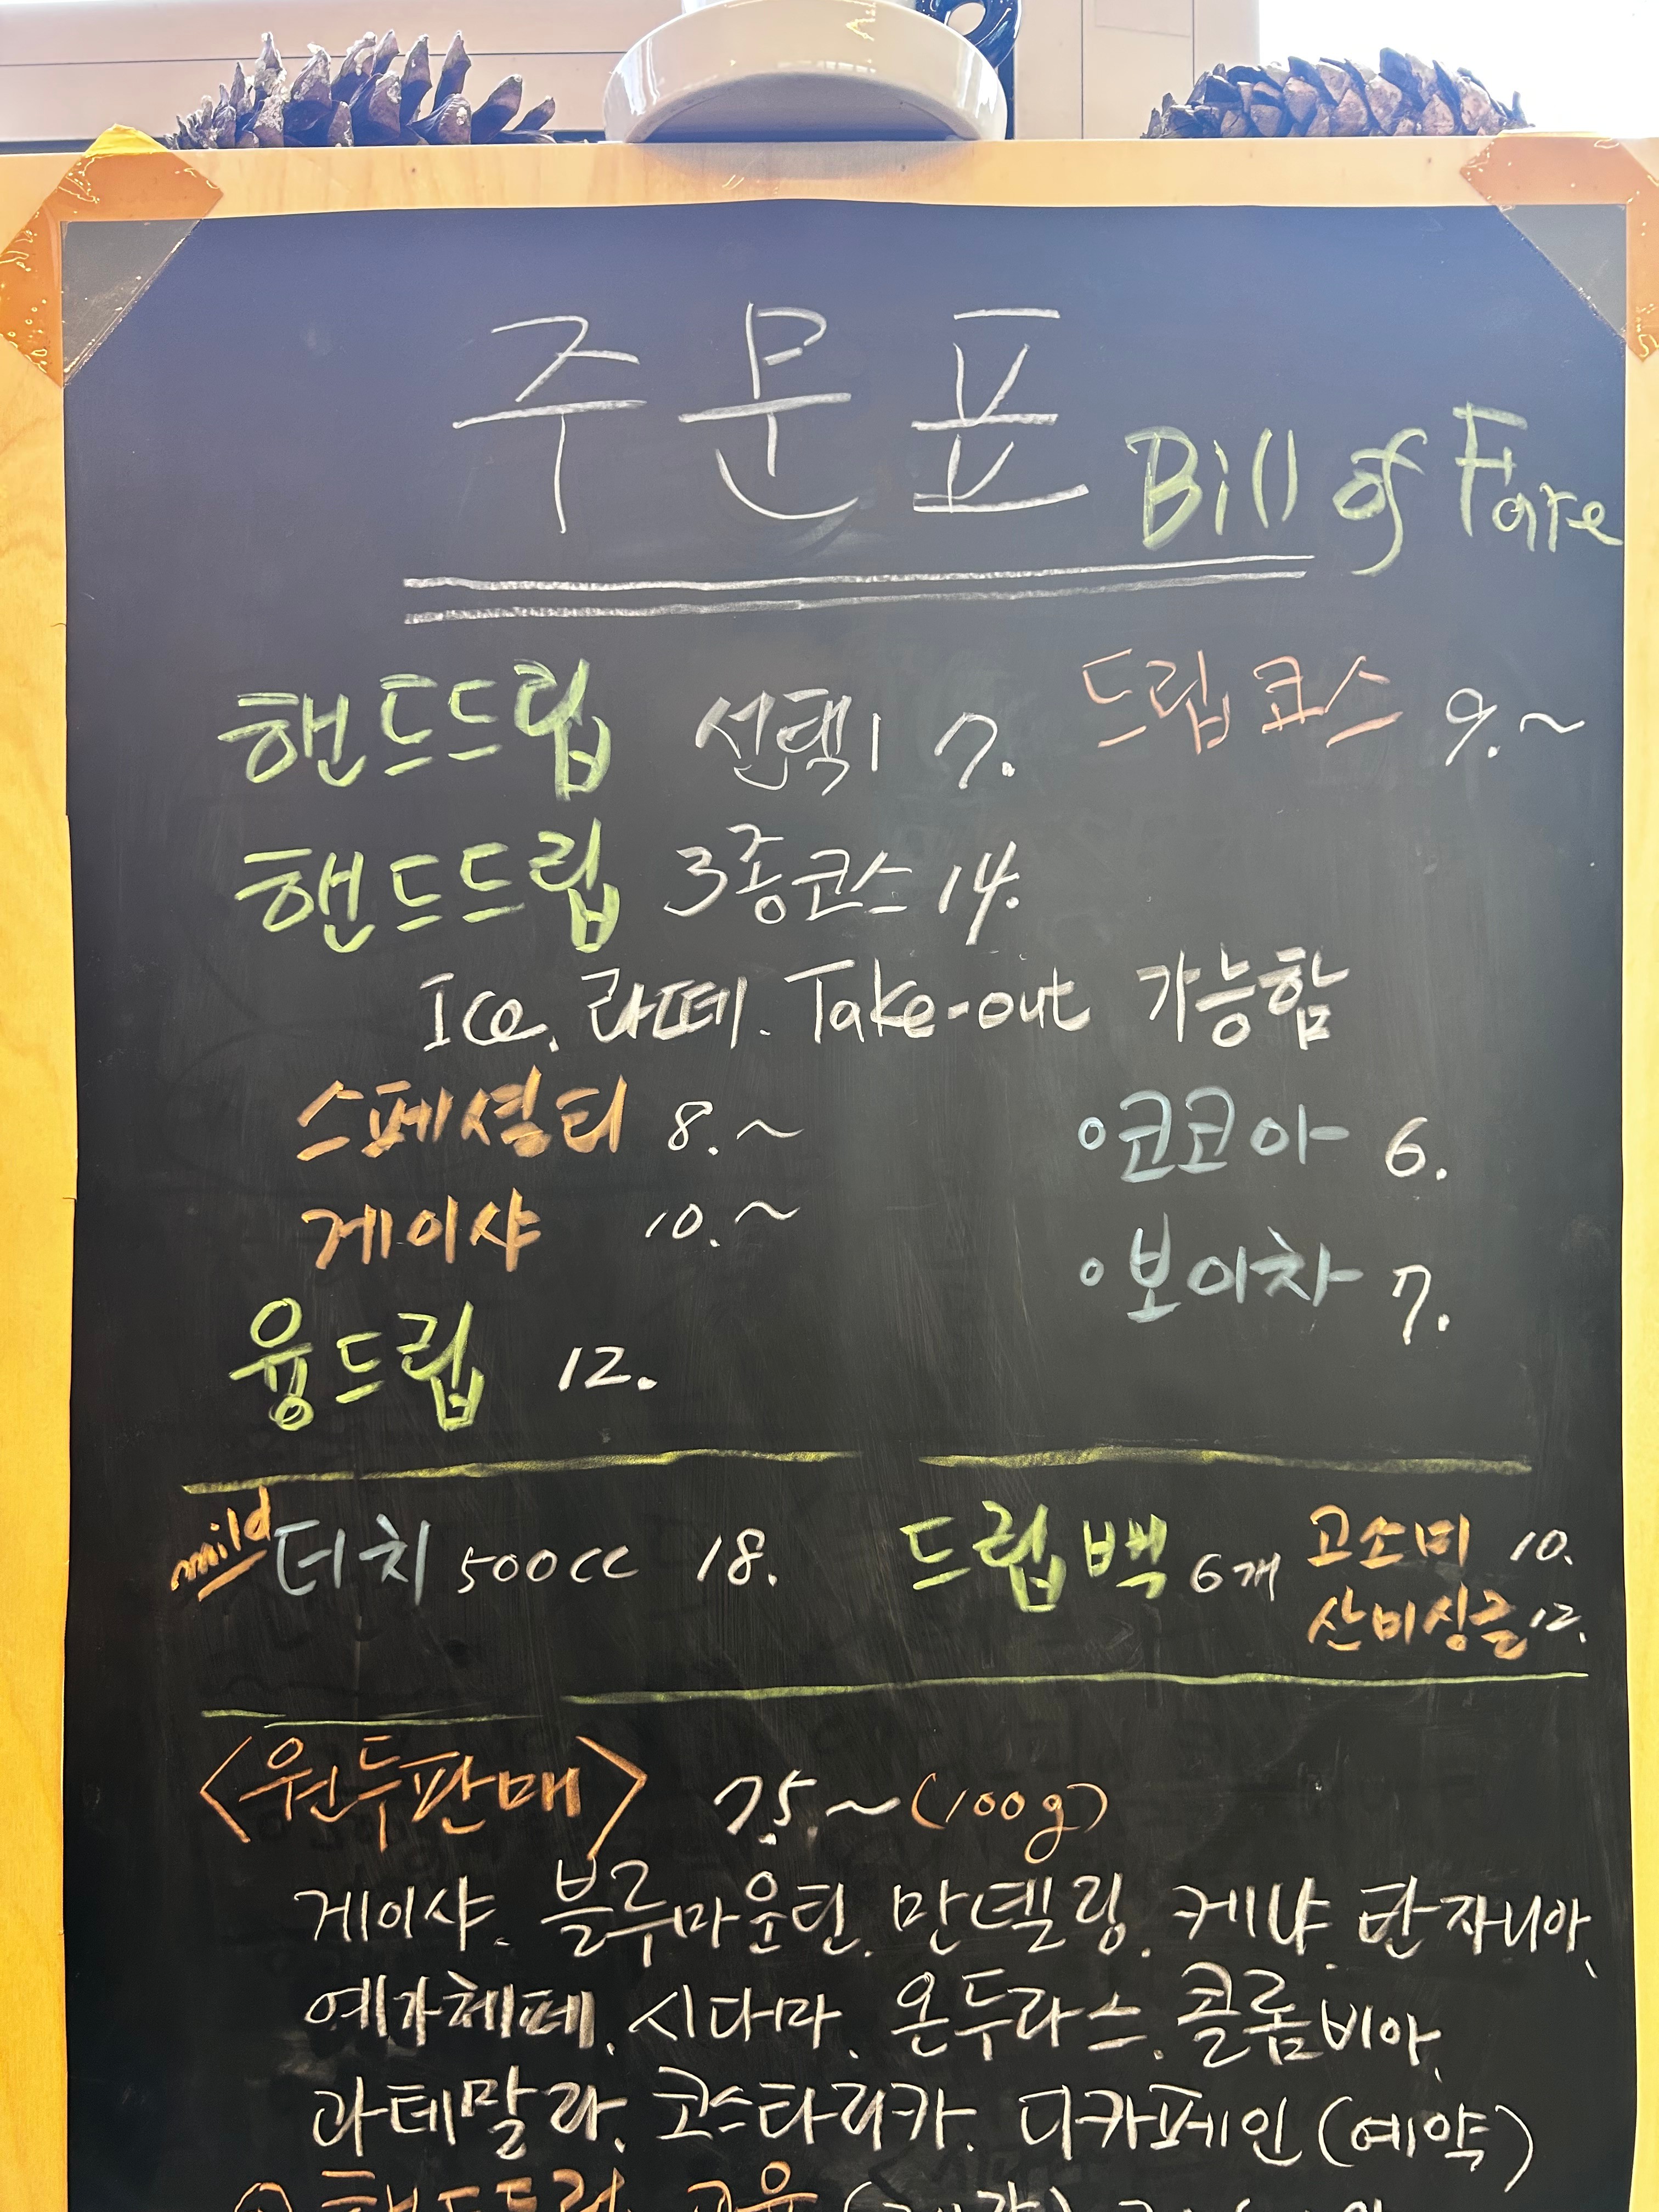 주문표 Bill of Fare
핸드드립 선택1 7. 드립코스 9.~
핸드드립 3종코스 14.
Ice. 라떼. Take-out 가능함
스페셜티 8.~
코코아 6.
게이샤 10.~
보이차 7.
융드립 12.
mild 더치 500cc 18.
드립백 6개 고소미 10.
산미싱글 12.
<원두판매> 7.5.~(100g)
게이샤. 블루마운틴. 만델링. 케냐. 탄자니아.
예가체페. 시다마. 온두라스. 콜롬비아.
과테말라. 코스타리카. 디카페인(예약)
핸드드립 교육